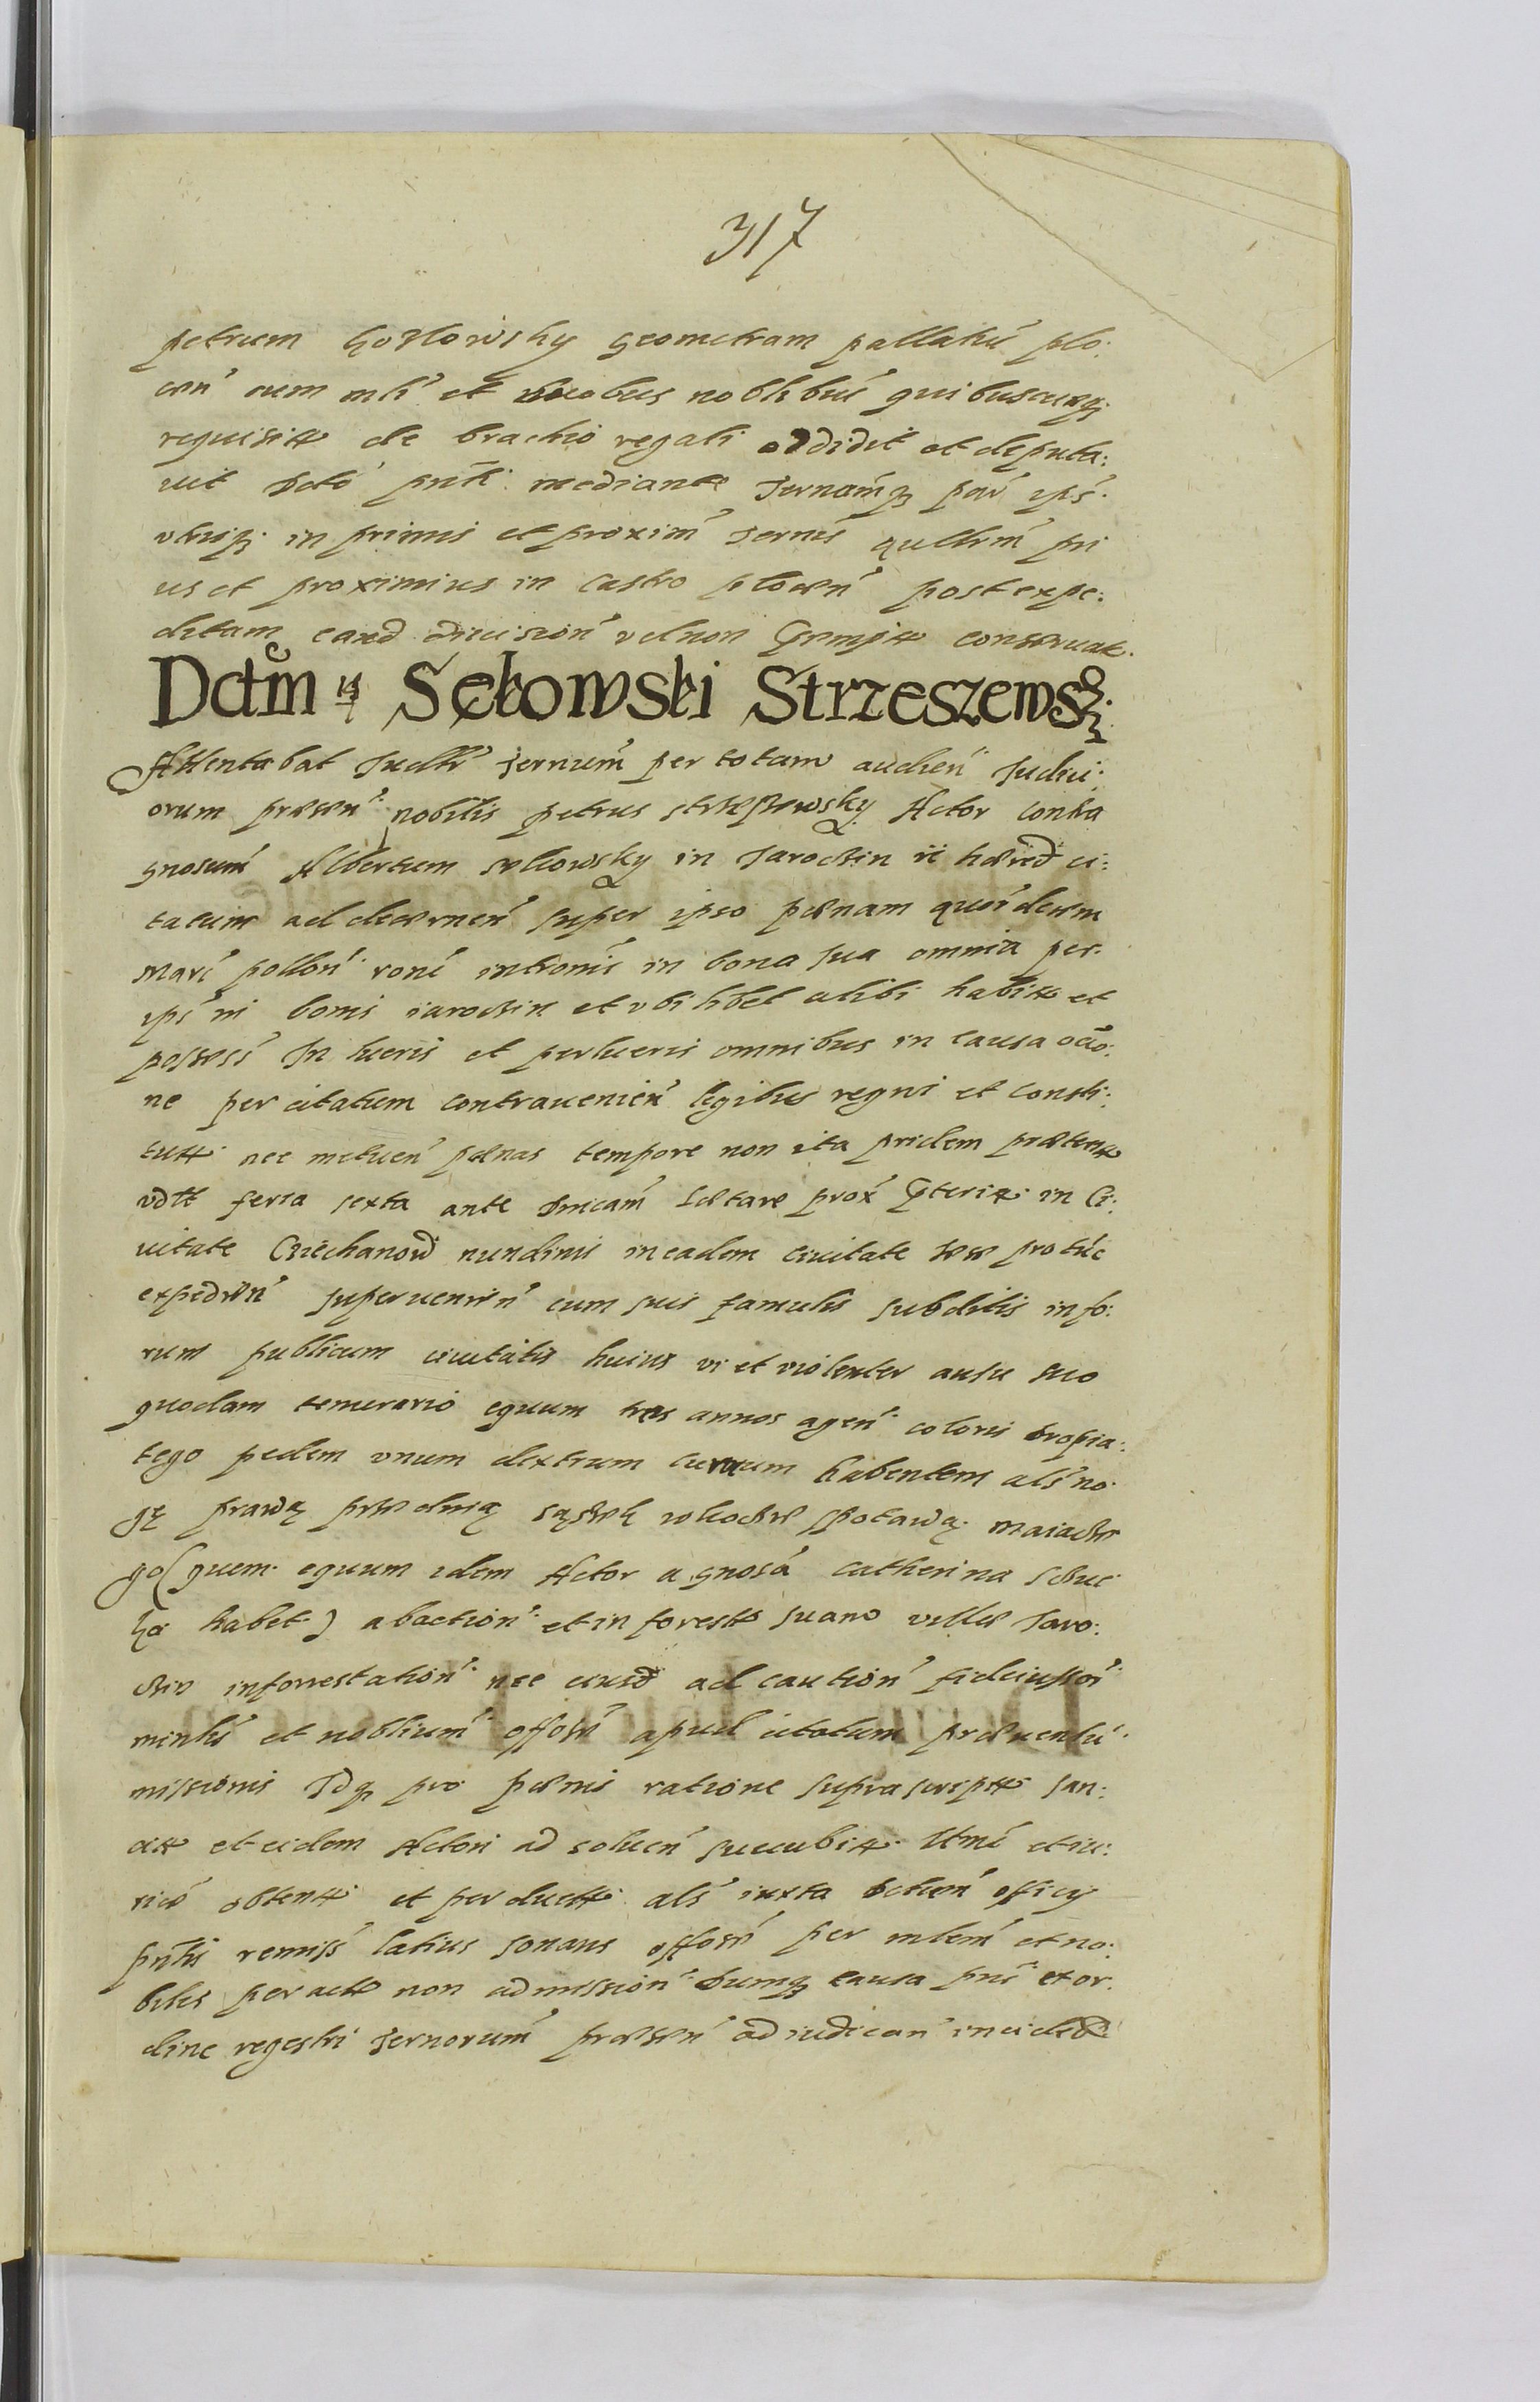 317
petrum Kozlowsky geometram pallatus plo:
cen cum mli et duobus noblibus quibuscunq;
requisitt de brachio regali addidit et deputa:
uit Dcto pnti mediante Ternamq; par ips
utrisq; in primis et proximis Ternis qultrm pri
us et proximius in Castro plocen post expe:
ditam eand diuision vel non compitt conseruat.
Dctm inter Sękowski Strzeszews:
Attentabat Judtr Ternum per totam audien Judici:
orum praesen nobilis petrus strzeszewsky Actor contra
gnosum Albertum sękowsky in Jaroczin ii haered ci:
tatum ad decernen super ipso paenam quordecim
Marc pollon roni intromis in bona sua omnia per
ips in bonis iaroczin et ubi libet alibi habitt et
possess In lucris et perlucris omnibus in causa occo:
ne per citatum contrauenien legibus regni et consti:
tutt nec metuen paenas tempore non ita pridem praeteritt
vdlt feria sexta ante Dnicam Laetare prox praeteritt in Ci:
uitate Cziechanow nundinis in eadem ciuitate pro tuc
expedien superuenien cum suis famulis subditis in fo:
rum publicum ciuitatis huius vi et violenter ausu suo
quodam temerario equum tres annos agen coloris dropia:
tego pedem unum dextrum curuum habentem als no
gę prawą przednią sąszek wkoczie spotawą maiacze
go (quem equum idem Actor a gnosa Catherina
ka habet) abaction et in forestt suam villae Jaro:
czin inforrestation nec eiusd ad caution fideiussor
mintlis et noblium offose apud citatum praeuentu
missionis Idq; pro paenis ratione suprascriptt san:
citt et eidem Actori ad soluen succubitt Itm et iu:
ricé obtentt et perductt als iuxta Actum officy
pntis remiss latius sonans offose per mlem et no:
biles per actt non admission Dumq; causa pns et or:
dine regestri Ternorum praesen adiudican incidet